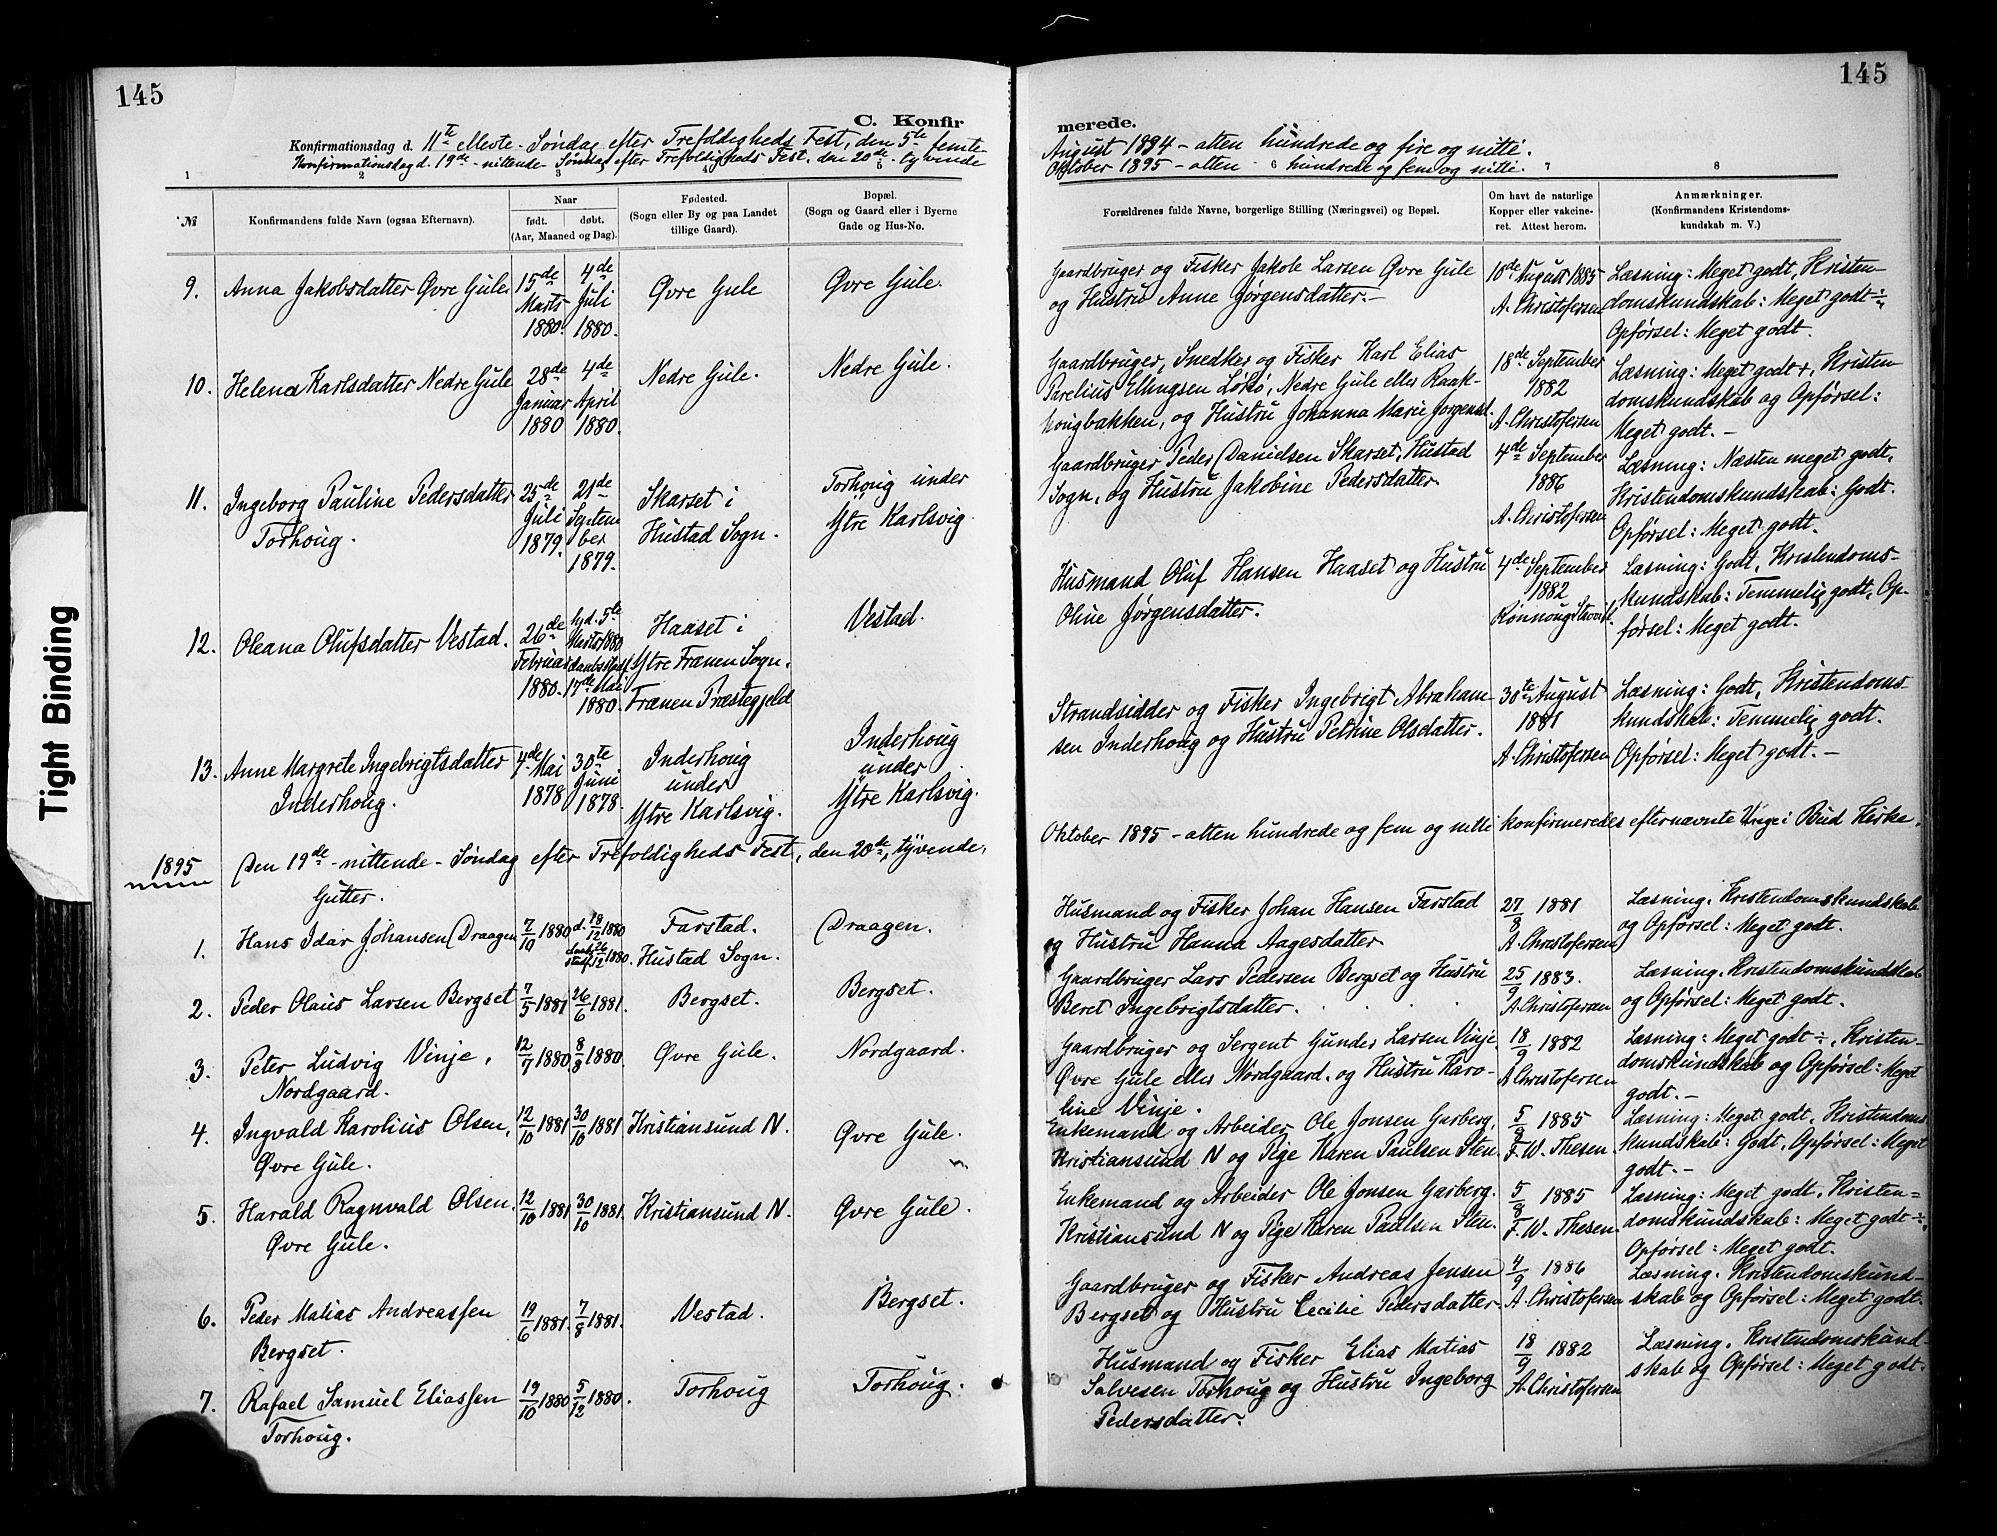 145
145
C. Konfir
merede.
Konfirmationsdag d. 11te Ellevte Søndag efter Trefoldigheds Fest, den 5te femte
August 1894 - atten hundrede og fire og nitti.
Konfirmationsdag d. 19de - nittende Søndag efter Trefoldigheds Fest, den 20de - tyvende
Oktober 1895 - atten hundrede og fem og nitti.
1 2 3 4 5 6 7 8
№
Konfirmandens fulde Navn (ogsaa Efternavn).
Naar
født. døbt.
(Aar, Maaned og Dag).
Fødested.
(Sogn eller By og paa Landet
tillige Gaard).
Bopæl.
(Sogn og Gaard eller i Byerne
Gade og Hus-No.
Forældrenes fulde Navne, borgerlige Stilling (Næringsvei) og Bopæl.
Om havt de naturlige
Kopper eller vakcine-
ret. Attest herom.
Anmærkninger.
(Konfirmandens Kristendoms-
kundskab m. V.)
9. Anna Jakobsdatter Øvre Gule.
15de
Marts
1880.
4de
Juli
1880.
Øvre Gule
Øvre Gule.
Gaardbruger og Fisker Jakob Larsen Øvre Gule
og Hustru Anne Jørgensdatter. -
18de August 1885
A. Christofersen
Læsning: Meget godt, Kristen-
domskundskab: Meget godt ÷,
Opførsel: Meget godt.
10. Helena Karlsdatter Nedre Gule
28de
Januar
1880
4de
April
1880.
Nedre Gule.
Nedre Gule.
Gaardbruger, Snedker og Fisker Karl Elias
Parelius Ellingsen Løkó, Nedre Gule eller Raak-
hougbakken, og Hustru Johanna Marie Jørgensd.
18de September
1882
A. Christofersen
Læsning: Meget godt +, Kristen
domskundskab og Opførsel:
Meget godt. -
11. Ingeborg Pauline Pedersdatter
Torhoug.
25de
Juli
1879.
21de
Septem
ber
1879.
Skarset i
Hustad Sogn.
Torhoug under
Ytre Karlsvig
Gaardbruger Peder Danielsen Skarset, Hustad
Sogn, og Hustru Jakobine Pedersdatter
4de September
1886
A. Christofersen
Læsning: Næsten meget godt,
Kristendomskundskab: Godt.
Opførsel: Meget godt.
12. Oleana Olufsdatter Vestad.
26de
Februar
1880.
hj.d. 5te
Marts 1880
daabsstadf.
17de Mai
1880.
Haaset i
Ytre Frænen Sogn.
Frænen Præstegjeld
Vestad.
Husmand Oluf Hansen Haaset og Hustru
Oline Jørgensdatter.
4de September
1882
Rønnoug
Læsning: Godt, Kristendoms-
kundskab: Temmelig godt, Op-
førsel: Meget godt.
13. Anne Margrete Ingebrigtsdatter
Inderhoug.
4de Mai
1878
30te
Juni
1878.
Inderhoug
under
Ytre Karlsvig.
Inderhoug
under
Ytre Karlsvig.
Strandsidder og Fisker Ingebrigt Abraham-
sen Inderhoug og Hustru Petrine Olsdatter.
30te August
1881
A. Christofersen
Læsning: Godt, Kristendoms-
kundskab: Temmelig godt.
Opførsel: Meget godt. -
1895 Den 19de - nittende - Søndag efter Trefoldigheds Fest, den 20de, tyvende,
Oktober 1895 - atten hundrede og fem og nitti konfirmeredes efternævnte Unge i Bud Kirke.
Gutter.
1. Hans Idar Johansen Draagen
7/10 1880
d. 18/12 1880
daabs
stadf. 26/12 1880.
Farstad.
Hustad Sogn.
Draagen.
Husmand og Fisker Johan Hansen Farstad
og Hustru Hanna Aagesdatter
27/8 1881
A. Christofersen
Læsning, Kristendomskundskab
og Opførsel: Meget godt.
2. Peder Olaus Larsen Bergset
7/5 1881
26/6 1881.
Bergset.
Bergset.
Gaardbruger Lars Pedersen Bergset og Hustru
Beret Ingebrigtsdatter.
25/9 1883.
A. Christofersen
Læsning, Kristendomskundskab
og Opførsel: Meget godt.
3. Peter Ludvig Vinje,
Nordgaard.
12/7 1880
8/8 1880.
Øvre Gule.
Nordgaard.
Gaardbruger og Sergent Gunder Larsen Vinje,
Øvre Gule eller Nordgaard. og Hustru Karo-
line Vinje.
18/9 1882
A. Christofersen
Læsning: Meget godt ÷, Kristen-
domskundskab og Opførsel: Meget
godt. -
4. Ingvald Karolius Olsen,
Øvre Gule.
12/10 1881
30/10 1881
Kristiansund N.
Øvre Gule.
Enkemand og Arbeider Ole Jonsen Garberg,
Kristiansund N og Pige Karen Paulsen Sten
5/8 1885
F. W. Thesen.
Læsning: Meget godt, Kristendoms
kundskab: Godt, Opførsel: Meget
godt. -
5. Harald Ragnvald Olsen,
Øvre Gule.
12/10 1881
30/10 1881.
Kristiansund N.
Øvre Gule.
Enkemand og Arbeider Ole Jonsen Garberg.
Kristiansund N og Pige Karen Paulsen Sten.
5/8 1885
F. W. Thesen.
Læsning: Meget godt, Kristen=
domskundskab: Meget godt ÷,
Opførsel: Meget godt.
6. Peder Matias Andreassen
Bergset.
19/6 1881.
7/8 1881.
Vestad.
Bergset.
Gaardbruger og Fisker Andreas Jensen
Bergset og Hustru Cecilie Pedersdatter
4/9 1886
A. Christofersen
Læsning, Kristendomskund-
skab og Opførsel: Meget godt.
7. Rafael Samuel Eliassen
Torhoug.
19/10 1880
5/12 1880.
Torhoug
Torhoug.
Husmand og Fisker Elias Matias
Salvesen Torhoug og Hustru Ingeborg
Pedersdatter.
18/9 1882
A. Christofersen
Læsning, Kristendomskund
skab og Opførsel: Meget godt.
Tight Binding